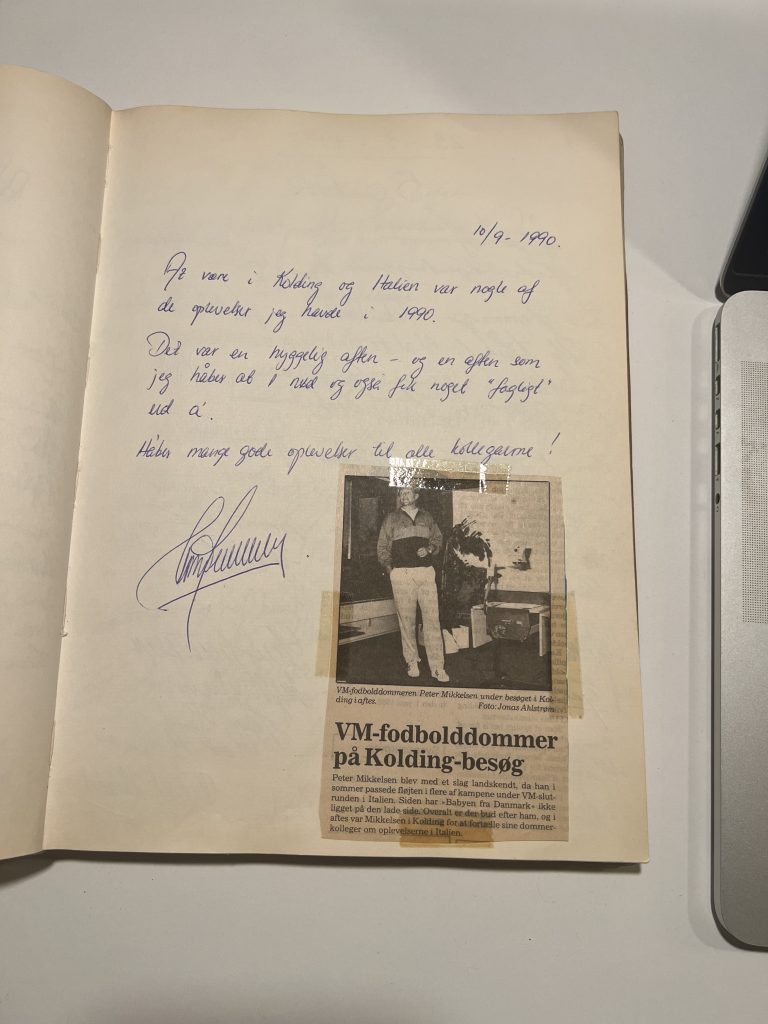 10/9 - 1990.
At være i Kolding og Italien var nogle af
de oplevelser jeg havde i 1990.
Det var en hyggelig aften - og en aften som
jeg håber at I nød og også fik noget "fagligt"
ud a'.
Håber mange gode oplevelser til alle kollegaerne!
VM-fodbolddommeren Peter Mikkelsen under besøget i Kol-
ding i aftes. Foto: Jonas Ahlstrøm
VM-fodbolddommer
på Kolding-besøg
Peter Mikkelsen blev med et slag landskendt, da han i
sommer passede fløjten i flere af kampene under VM-slut-
runden i Italien. Siden har »Babyen fra Danmark« ikke
ligget på den lade side. Overalt er der bud efter ham, og i
aftes var Mikkelsen i Kolding for at fortælle sine dommer-
kolleger om oplevelserne i Italien.